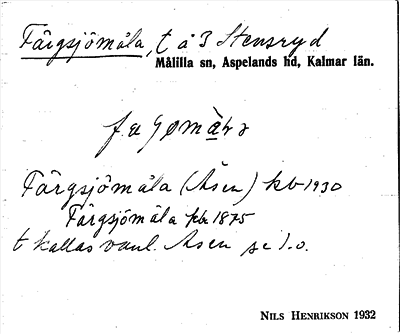 Färgsjömåla, t å 3 Stensryd
Målilla sn, Aspelands hd, Kalmar län.
Färgsjömåla (Åsen) kb 1930
Färgsjömåla kbr 1875
t kallas vanl. Åsen se d.o.
NILS HENRIKSON 1932